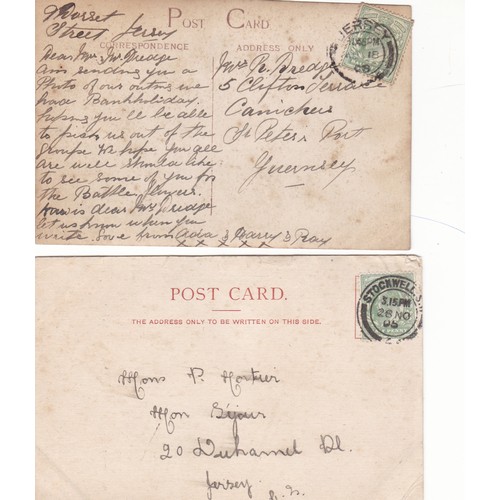 9 Dorset
Street Jersey
POST CARD
CORRESPONDENCE
ADDRESS ONLY
JERSEY
18
Dear Mrs Mr Bredge
am sending you a
Photo of our outing we
had Bankholiday.
hoping you'll be able
to pick us out of the
groupe & hope you all
are well should like
to see some of you for
the Battle flowers.
How is dear Mrs
let us know when you
write love from Ada & Harry & Ray
x x x x x
Mrs R. Bredge
5 Clifton Terrace
Canichers
St Peters Port
Guernsey
POST CARD.
THE ADDRESS ONLY TO BE WRITTEN ON THIS SIDE.
STOCKWELL S.W
5.15PM
26 NO
05
Mons P.
Mon Séjour
20 Duhamel Pl.
Jersey